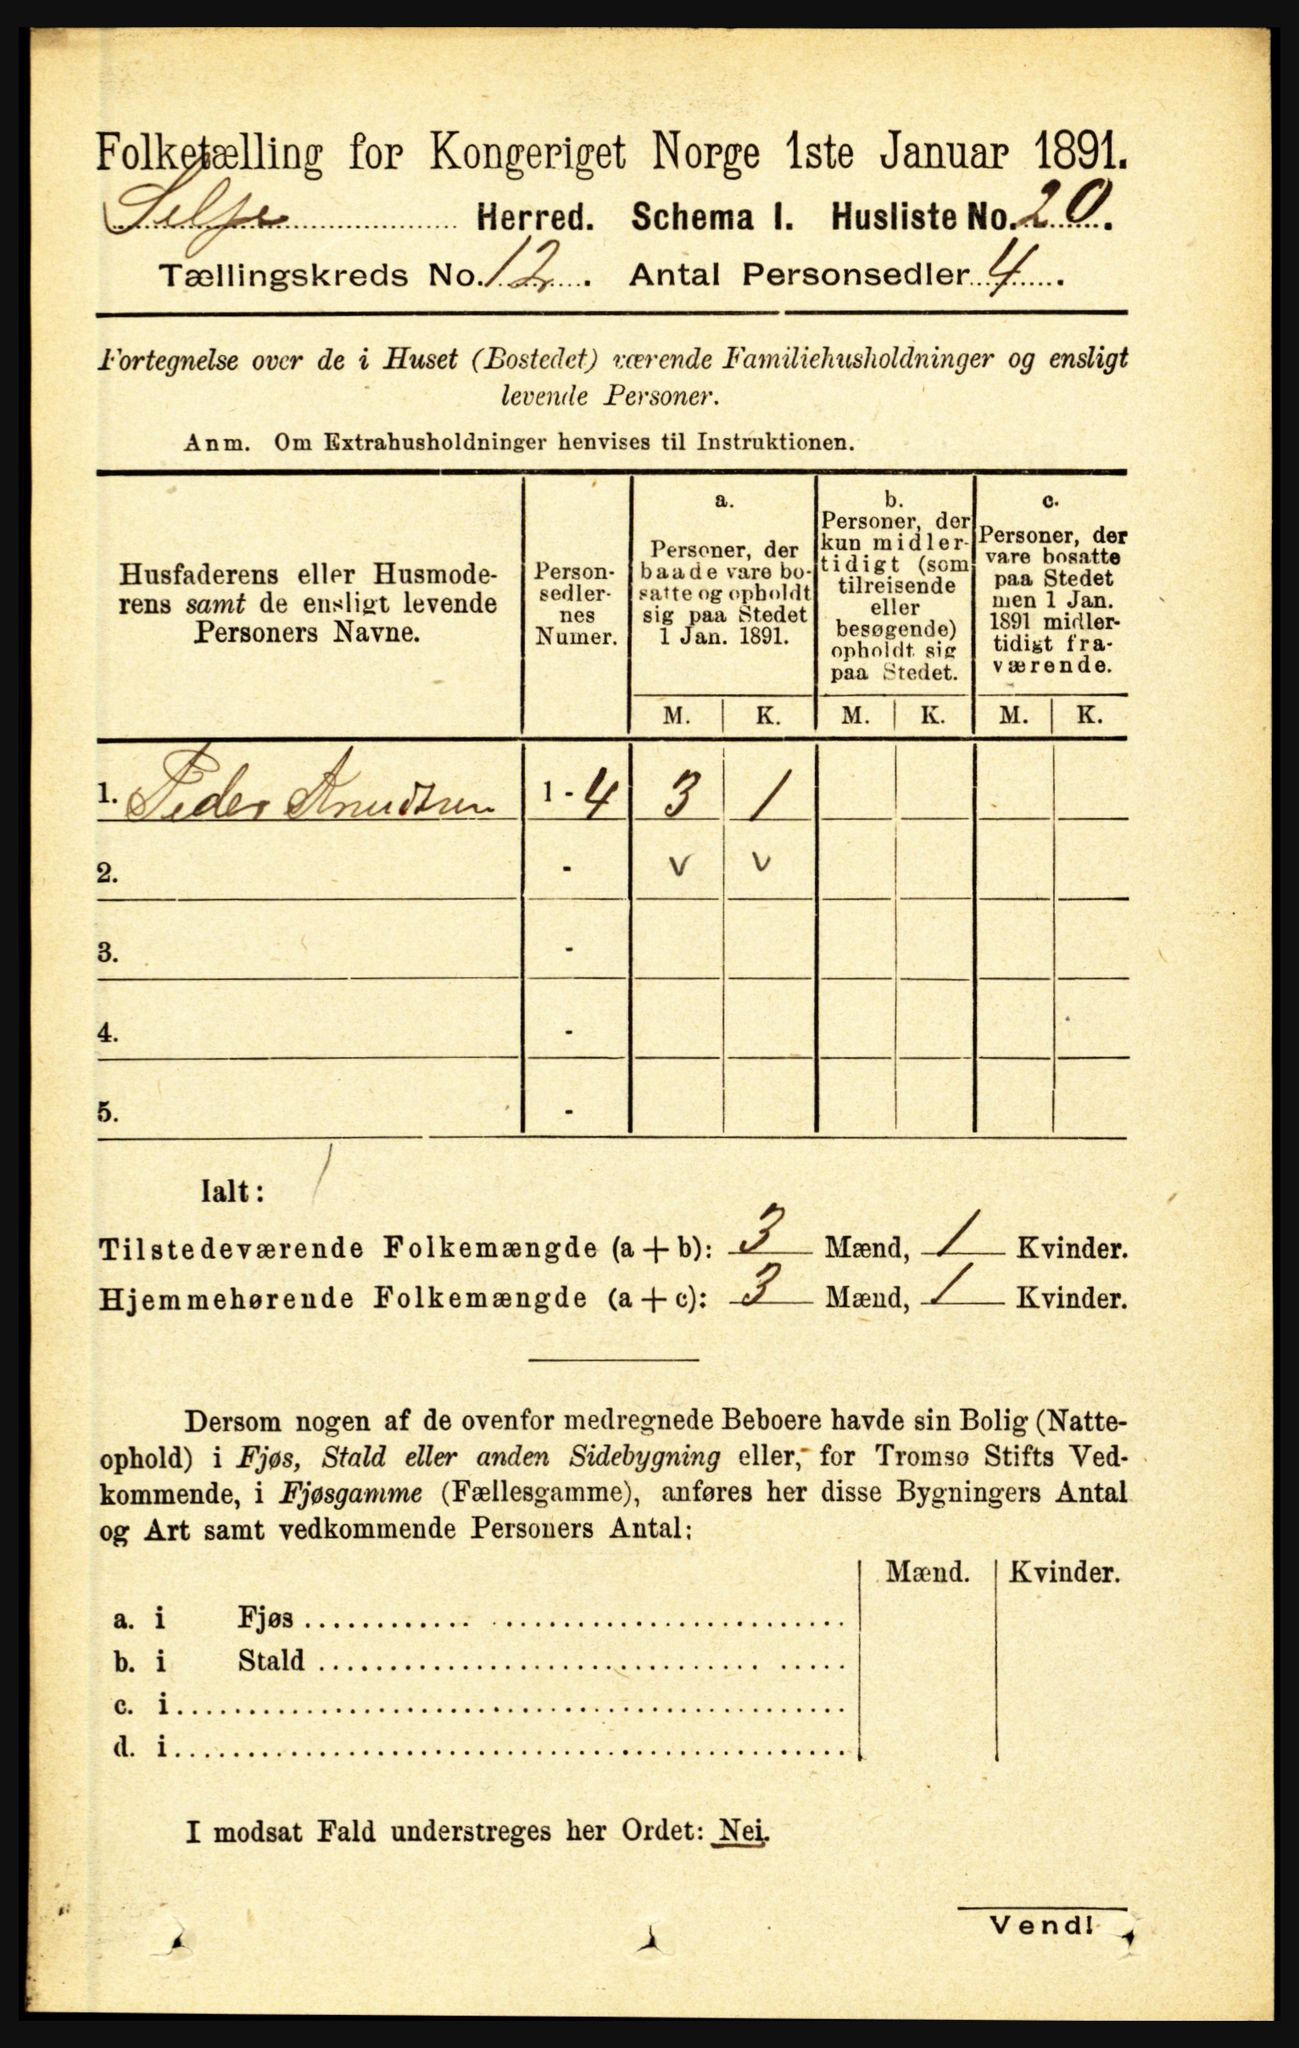 Folketælling for Kongeriget Norge 1ste Januar 1891.
Selje Herred. Schema I. Husliste No. 20.
Tællingskreds No. 12. Antal Personsedler 4.
Fortegnelse over de i Huset (Bostedet) værende Familiehusholdninger og ensligt
levende Personer.
Anm. Om Extrahusholdninger henvises til Instruktionen.
Husfaderens eller Husmode-
rens samt de ensligt levende
Personers Navne.
Person-
sedler-
nes
Numer.
a.
Personer, der
baade vare bo-
satte og opholdt
sig paa Stedet
1 Jan. 1891.
b.
Personer, der
kun midler-
tidigt (som
tilreisende
eller
besøgende)
opholdt sig
paa Stedet.
c.
Personer, der
vare bosatte
paa Stedet
men 1 Jan.
1891 midler-
tidigt fra-
værende.
M. K. M. K. M. K.
1. Peder Knudsen 1 - 4 3 1
2. - v v
3. -
4. -
5. -
Ialt: 1
Tilstedeværende Folkemængde (a + b): 3 Mænd, 1 Kvinder.
Hjemmehørende Folkemængde (a + c): 3 Mænd, 1 Kvinder.
Dersom nogen af de ovenfor medregnede Beboere havde sin Bolig (Natte-
ophold) i Fjøs, Stald eller anden Sidebygning eller, for Tromsø Stifts Ved-
kommende, i Fjøsgamme (Fællesgamme), anføres her disse Bygningers Antal
og Art samt vedkommende Personers Antal:
Mænd. Kvinder.
a. i Fjøs
b. i Stald
c. i
d. i
I modsat Fald understreges her Ordet: Nei.
Vend!